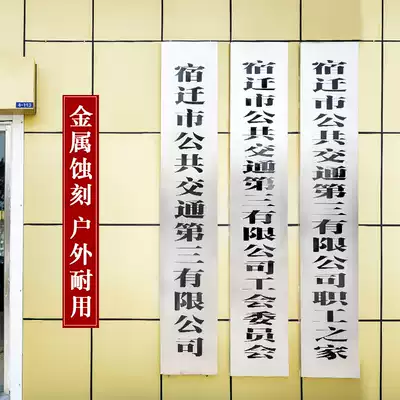 金属蚀刻 户外耐用
宿迁市公共交通第三有限公司
宿迁市公共交通第三有限公司工会委员会
宿迁市公共交通第三有限公司职工之家